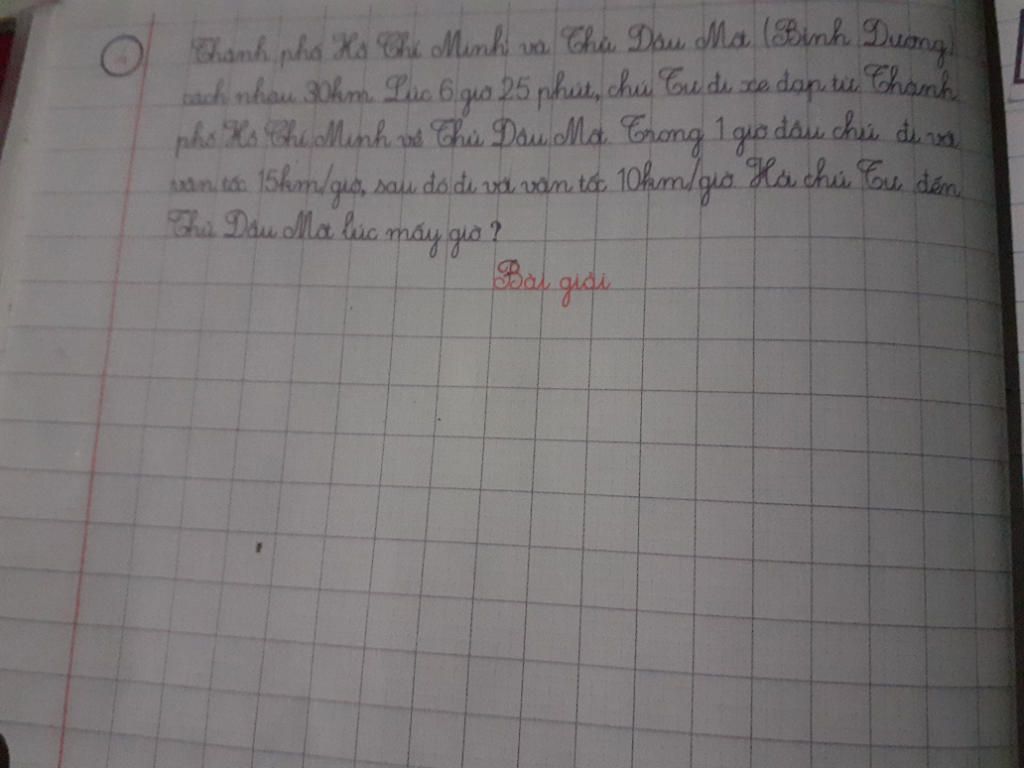 Thành phố Hồ Chí Minh và Thủ Dầu Một (Bình Dương)
cách nhau 30km. Lúc 6 giờ 25 phút, chú Tư đi xe đạp từ Thành
phố Hồ Chí Minh về Thủ Dầu Một. Trong 1 giờ đầu chú đi với
vận tốc 15km/giờ, sau đó đi với vận tốc 10km/giờ. Hỏi chú Tư đến
Thủ Dầu Một lúc mấy giờ?
Bài giải